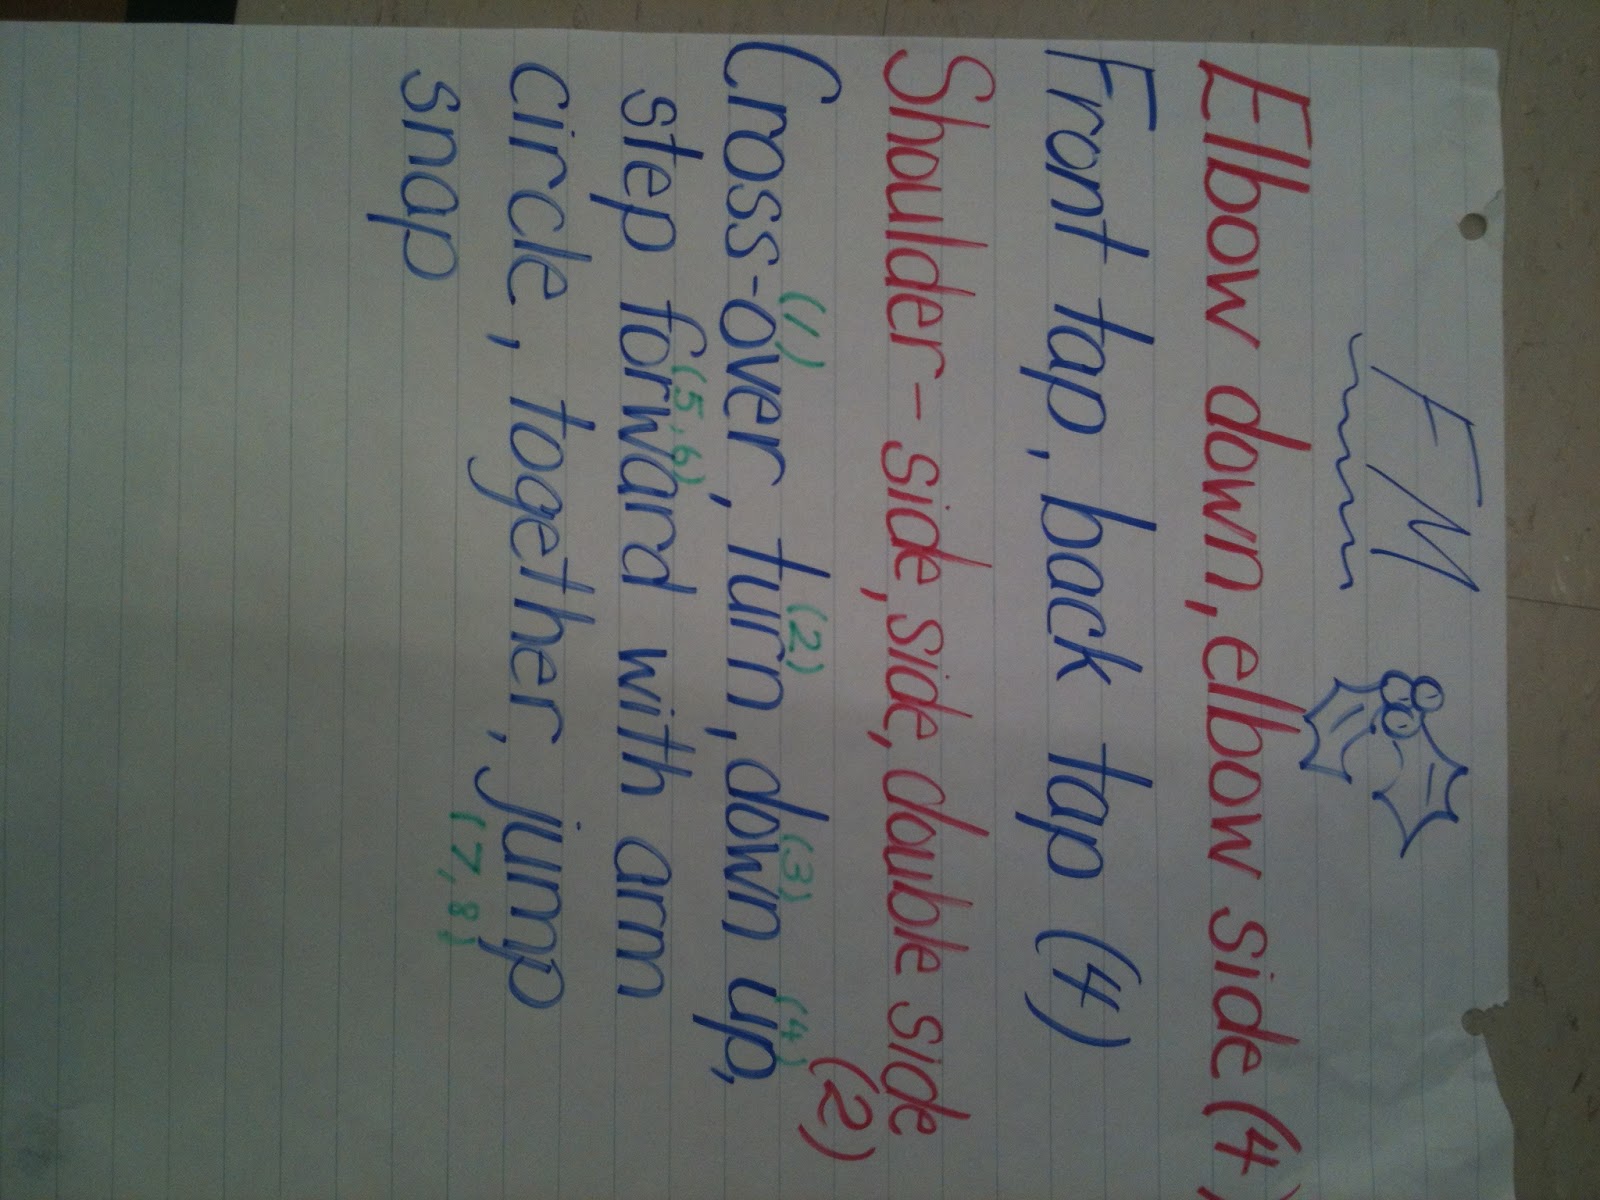 FM
Elbow down, elbow side (4)
Front tap, back tap (4)
Shoulder - side, side, double side
(2)
(1) (2) (3) (4)
Cross-over, turn, down up,
(5,6)
step forward with arm
circle, together, jump
(7,8)
snap